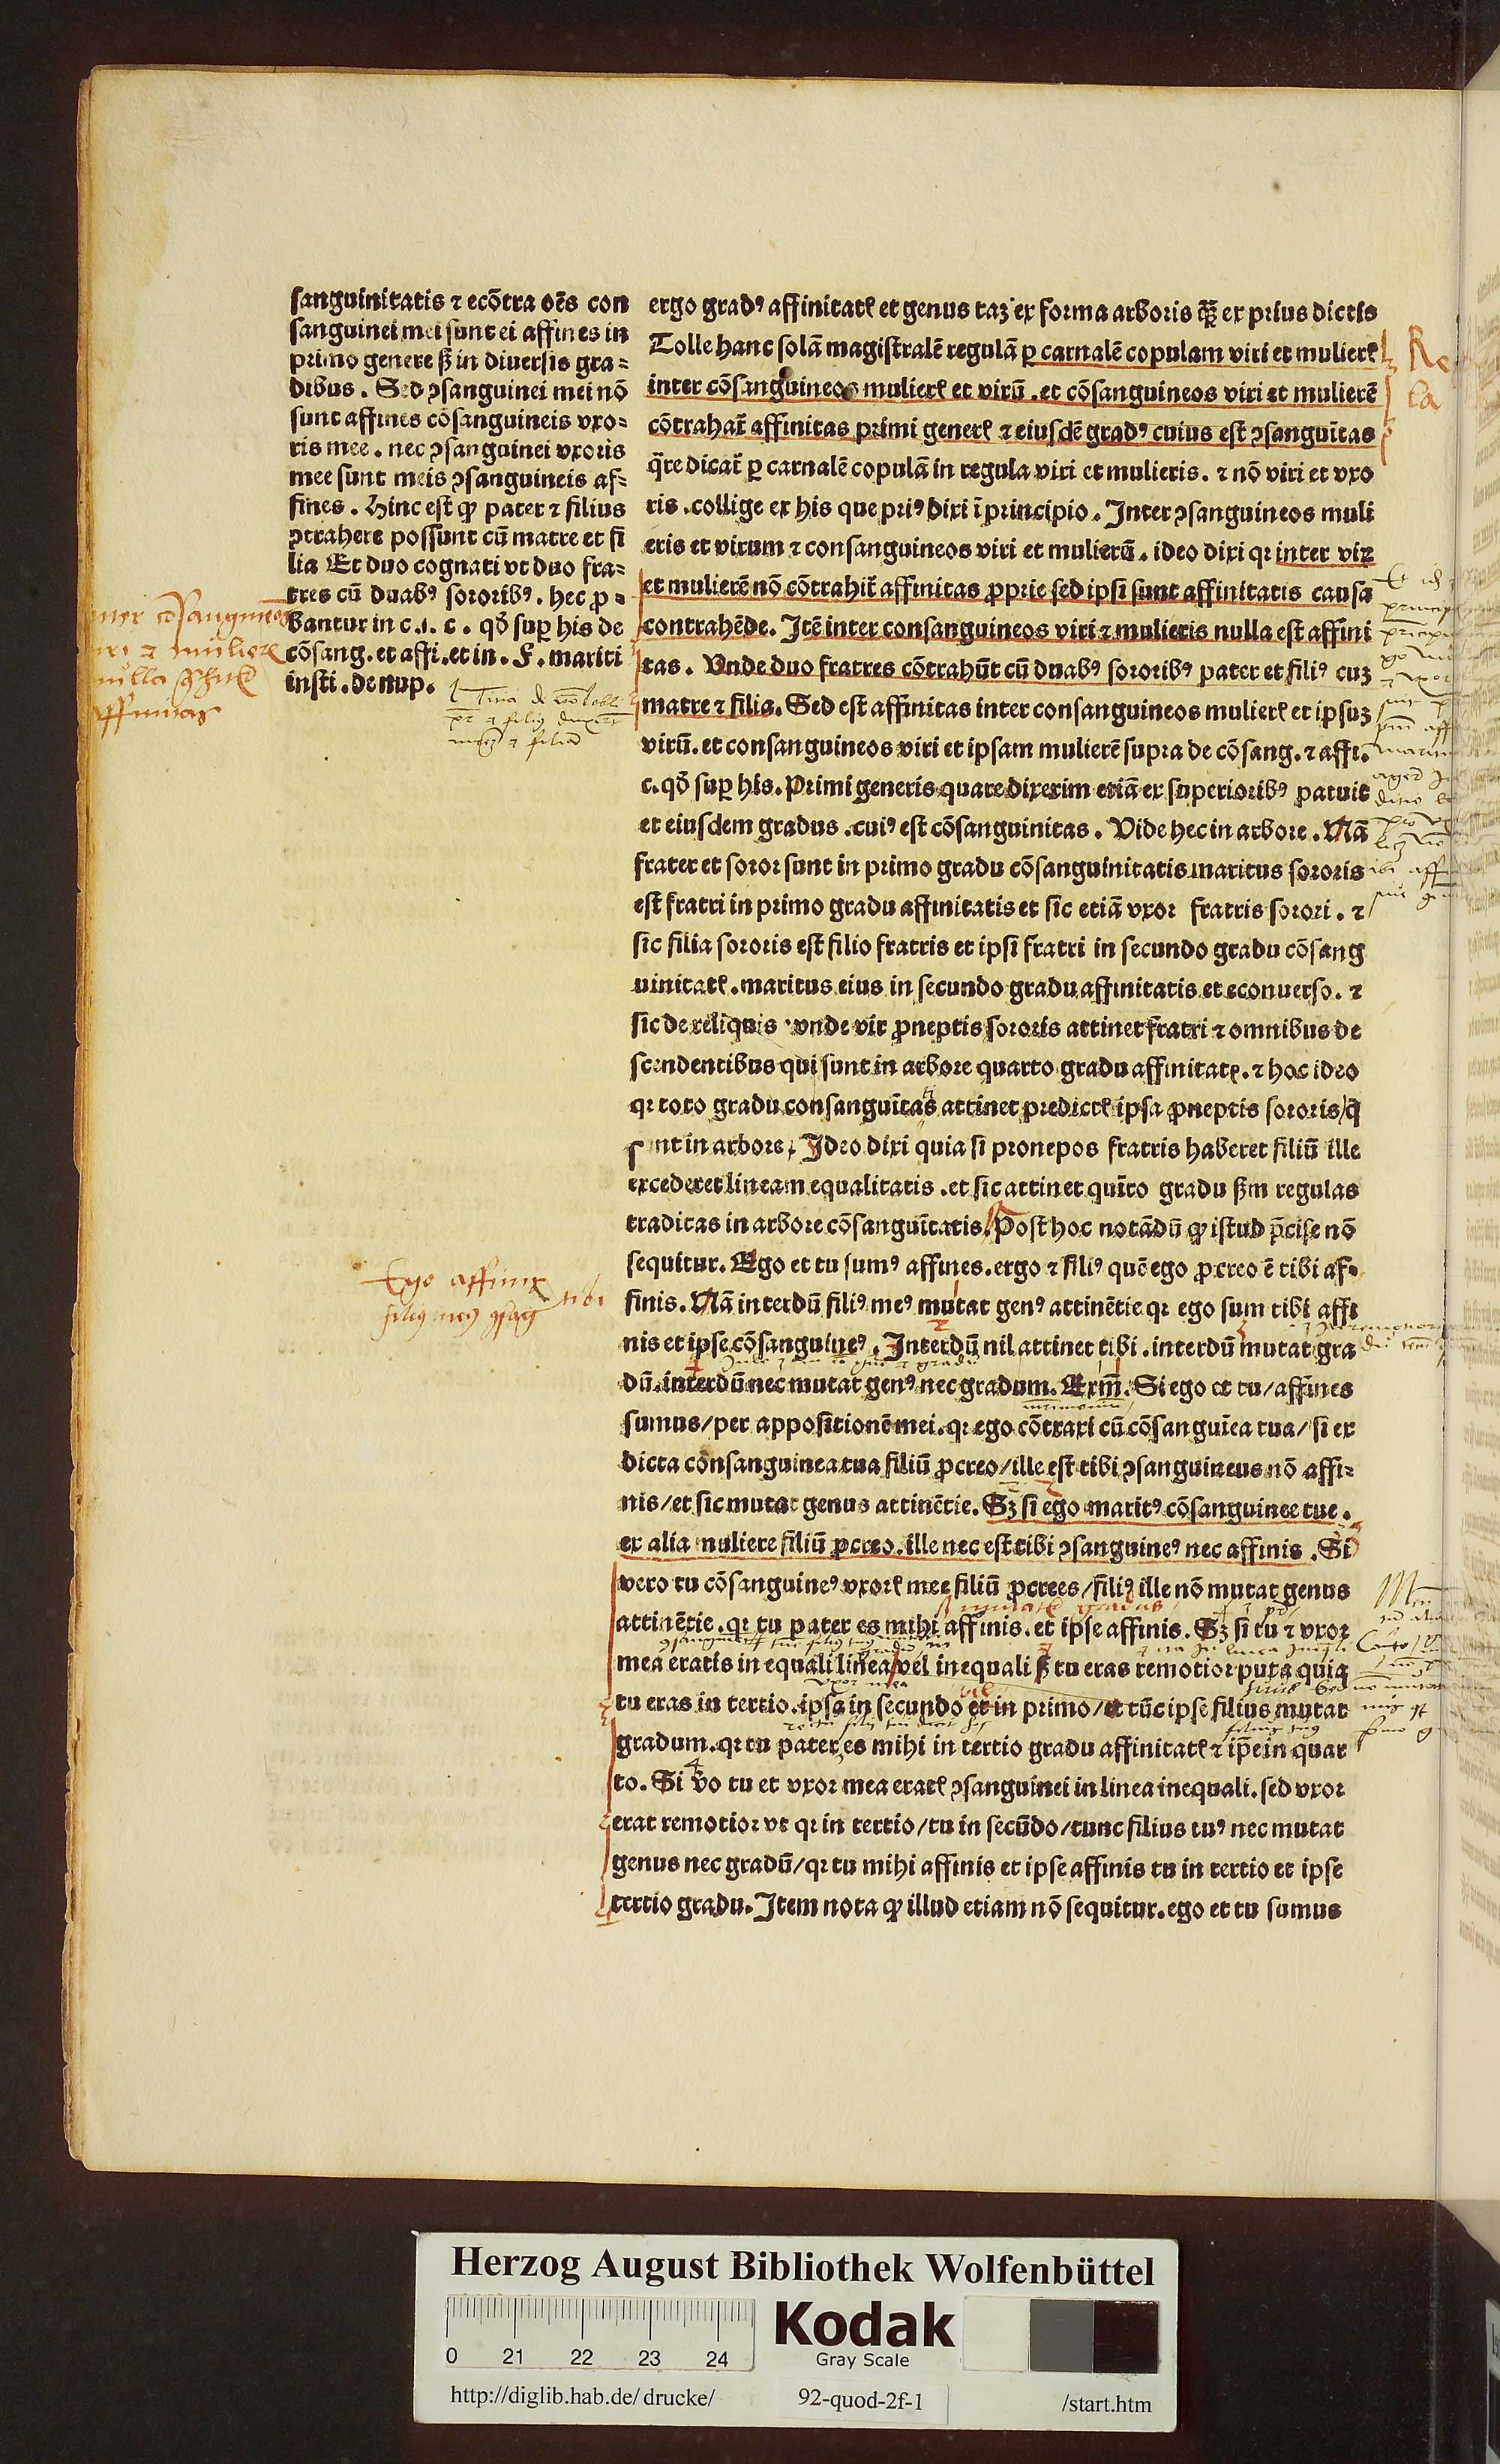 sanguinitatis ⁊ ecōtra oēs con
sanguinei mei sunt ei affines in
primo genere ꝭꝫ in diuersis gra⸗
dibus. Sed ↄsanguinei mei nō
sunt affines cōsanguineis vxo⸗
ris mee. nec ↄsanguinei vxoris
mee sunt meis ↄsanguineis af⸗
fines. Hinc est ꝙ pater ⁊ filius
ↄtrahere possunt cū matre et fi
lia Et duo cognati vt duo fra⸗
tres cū duabꝰ sororibꝰ. hec ꝓ⸗
bantur in c.i. c. qđ suꝑ his de
cōsang. et affi. et in. F. mariti
insti. de nup.
cōsanguineos
⁊ muliere
nulla
affinitas
⁊ filia
Ego affinis tibi
filiꝰ meꝰ ↄsang
ergo gradꝰ affinitatꝭ et genus taꝫ ex forma arboris ꝗꝫ ex prius dictis
Tolle hanc solā magistralē regulā ꝑ carnalē copulam viri et mulierꝭ
inter cōsanguineos mulierꝭ et virū. et cōsanguineos viri et mulierē
cōtrahat̄ affinitas primi generꝭ ⁊ eiusdē gradꝰ cuius est ↄsanguītas
q̄re dicat̄ ꝑ carnalē copulā in regula viri et mulieris. ⁊ nō viri et vxo
ris. collige ex his que priꝰ dixi ī principio. Inter ↄsanguineos muli
eris et virum ⁊ consanguineos viri et mulierū. ideo dixi qꝛ inter viꝝ
et mulierē nō cōtrahit̄ affinitas ꝓprie sed ipsi sunt affinitatis causa
contrahēde. Itē inter consanguineos viri ⁊ mulieris nulla est affini
tas. Vnde duo fratres cōtrahūt cū duabꝰ sororibꝰ pater et filiꝰ cuꝫ
matre ⁊ filia. Sed est affinitas inter consanguineos mulierꝭ et ipsuꝫ
virū. et consanguineos viri et ipsam mulierē supra de cōsang. ⁊ affi.
c. qđ suꝑ his. Primi generis quare dixerim etiā ex superioribꝰ patuit
et eiusdem gradus. cuiꝰ est cōsanguinitas. Vide hec in arbore. Nā
frater et soror sunt in primo gradu cōsanguinitatis maritus sororis
est fratri in primo gradu affinitatis et sic etiā vxor fratris sorori. ⁊
sic filia sororis est filio fratris et ipsi fratri in secundo gradu cōsang
uinitatꝭ. maritus eius in secundo gradu affinitatis et econuerso. ⁊
sic de reliquis. vnde vir ꝓneptis sororis attinet fratri ⁊ omnibus de
scendentibus qui sunt in arbore quarto gradu affinitatꝭ. ⁊ hoc ideo
qꝛ toto gradu consanguītas attinet predictꝭ ipsa ꝓneptis sororis/ q̄
s nt in arbore. Ideo dixi quia si pronepos fratris haberet filiū ille
excederet lineam equalitatis. et sic attinet quīto gradu ẜm regulas
traditas in arbore cōsanguītatis. Post hoc notādū ꝙ istud p̄cise nō
sequitur. Ego et tu sumꝰ affines. ergo ⁊ filiꝰ quē ego ꝓcreo ē tibi af⸗
finis. Nā interdū filiꝰ meꝰ mutat genꝰ attinētie qꝛ ego sum tibi affi
nis et ipse cōsanguineꝰ. Interdū nil attinet tibi. interdū mutat gra
dū. interdū nec mutat genꝰ nec gradum. Exm̄. Si ego et tu/ affines
sumus/ per appositionē mei. qꝛ ego cōtraxi cū cōsanguīea tua/ si ex
dicta consanguinea tua filiū ꝓcreo/ ille est tibi ↄsanguineus nō affi⸗
nis/ et sic mutat genus attinētie. Sꝫ si ego maritꝰ cōsanguinee tue.
ex alia muliere filiū ꝓcreo. ille nec est tibi ↄsanguineꝰ nec affinis. Si
vero tu cōsanguineꝰ vxorꝭ mee filiū ꝓcrees/ filiꝰ ille nō mutat genus
attinētie. qꝛ tu pater es mihi affinis. et ipse affinis. Sꝫ si tu ⁊ vxor
mea eratis in equali linea/ vel inequali ꝭꝫ tu eras remotior puta quia
tu eras in tertio. ipsa in secundo et in primo/ et tūc ipse filius mutat
gradum. qꝛ tu pater es mihi in tertio gradu affinitatꝭ ⁊ ip̄e in quar
to. Si ꝟo tu et vxor mea eratꝭ ↄsanguinei in linea inequali. sed vxor
erat remotior vt qꝛ in tertio/ tu in secūdo/ tunc filius tuꝰ nec mutat
genus nec gradū/ qꝛ tu mihi affinis et ipse affinis tu in tertio et ipse
tertio gradu. Item nota ꝙ illud etiam nō sequitur. ego et tu sumus
Herzog August Bibliothek Wolfenbüttel
Kodak
Gray Scale
0 21 22 23 24
http://diglib.hab.de/drucke/ 92-quod-2f-1 /start.htm